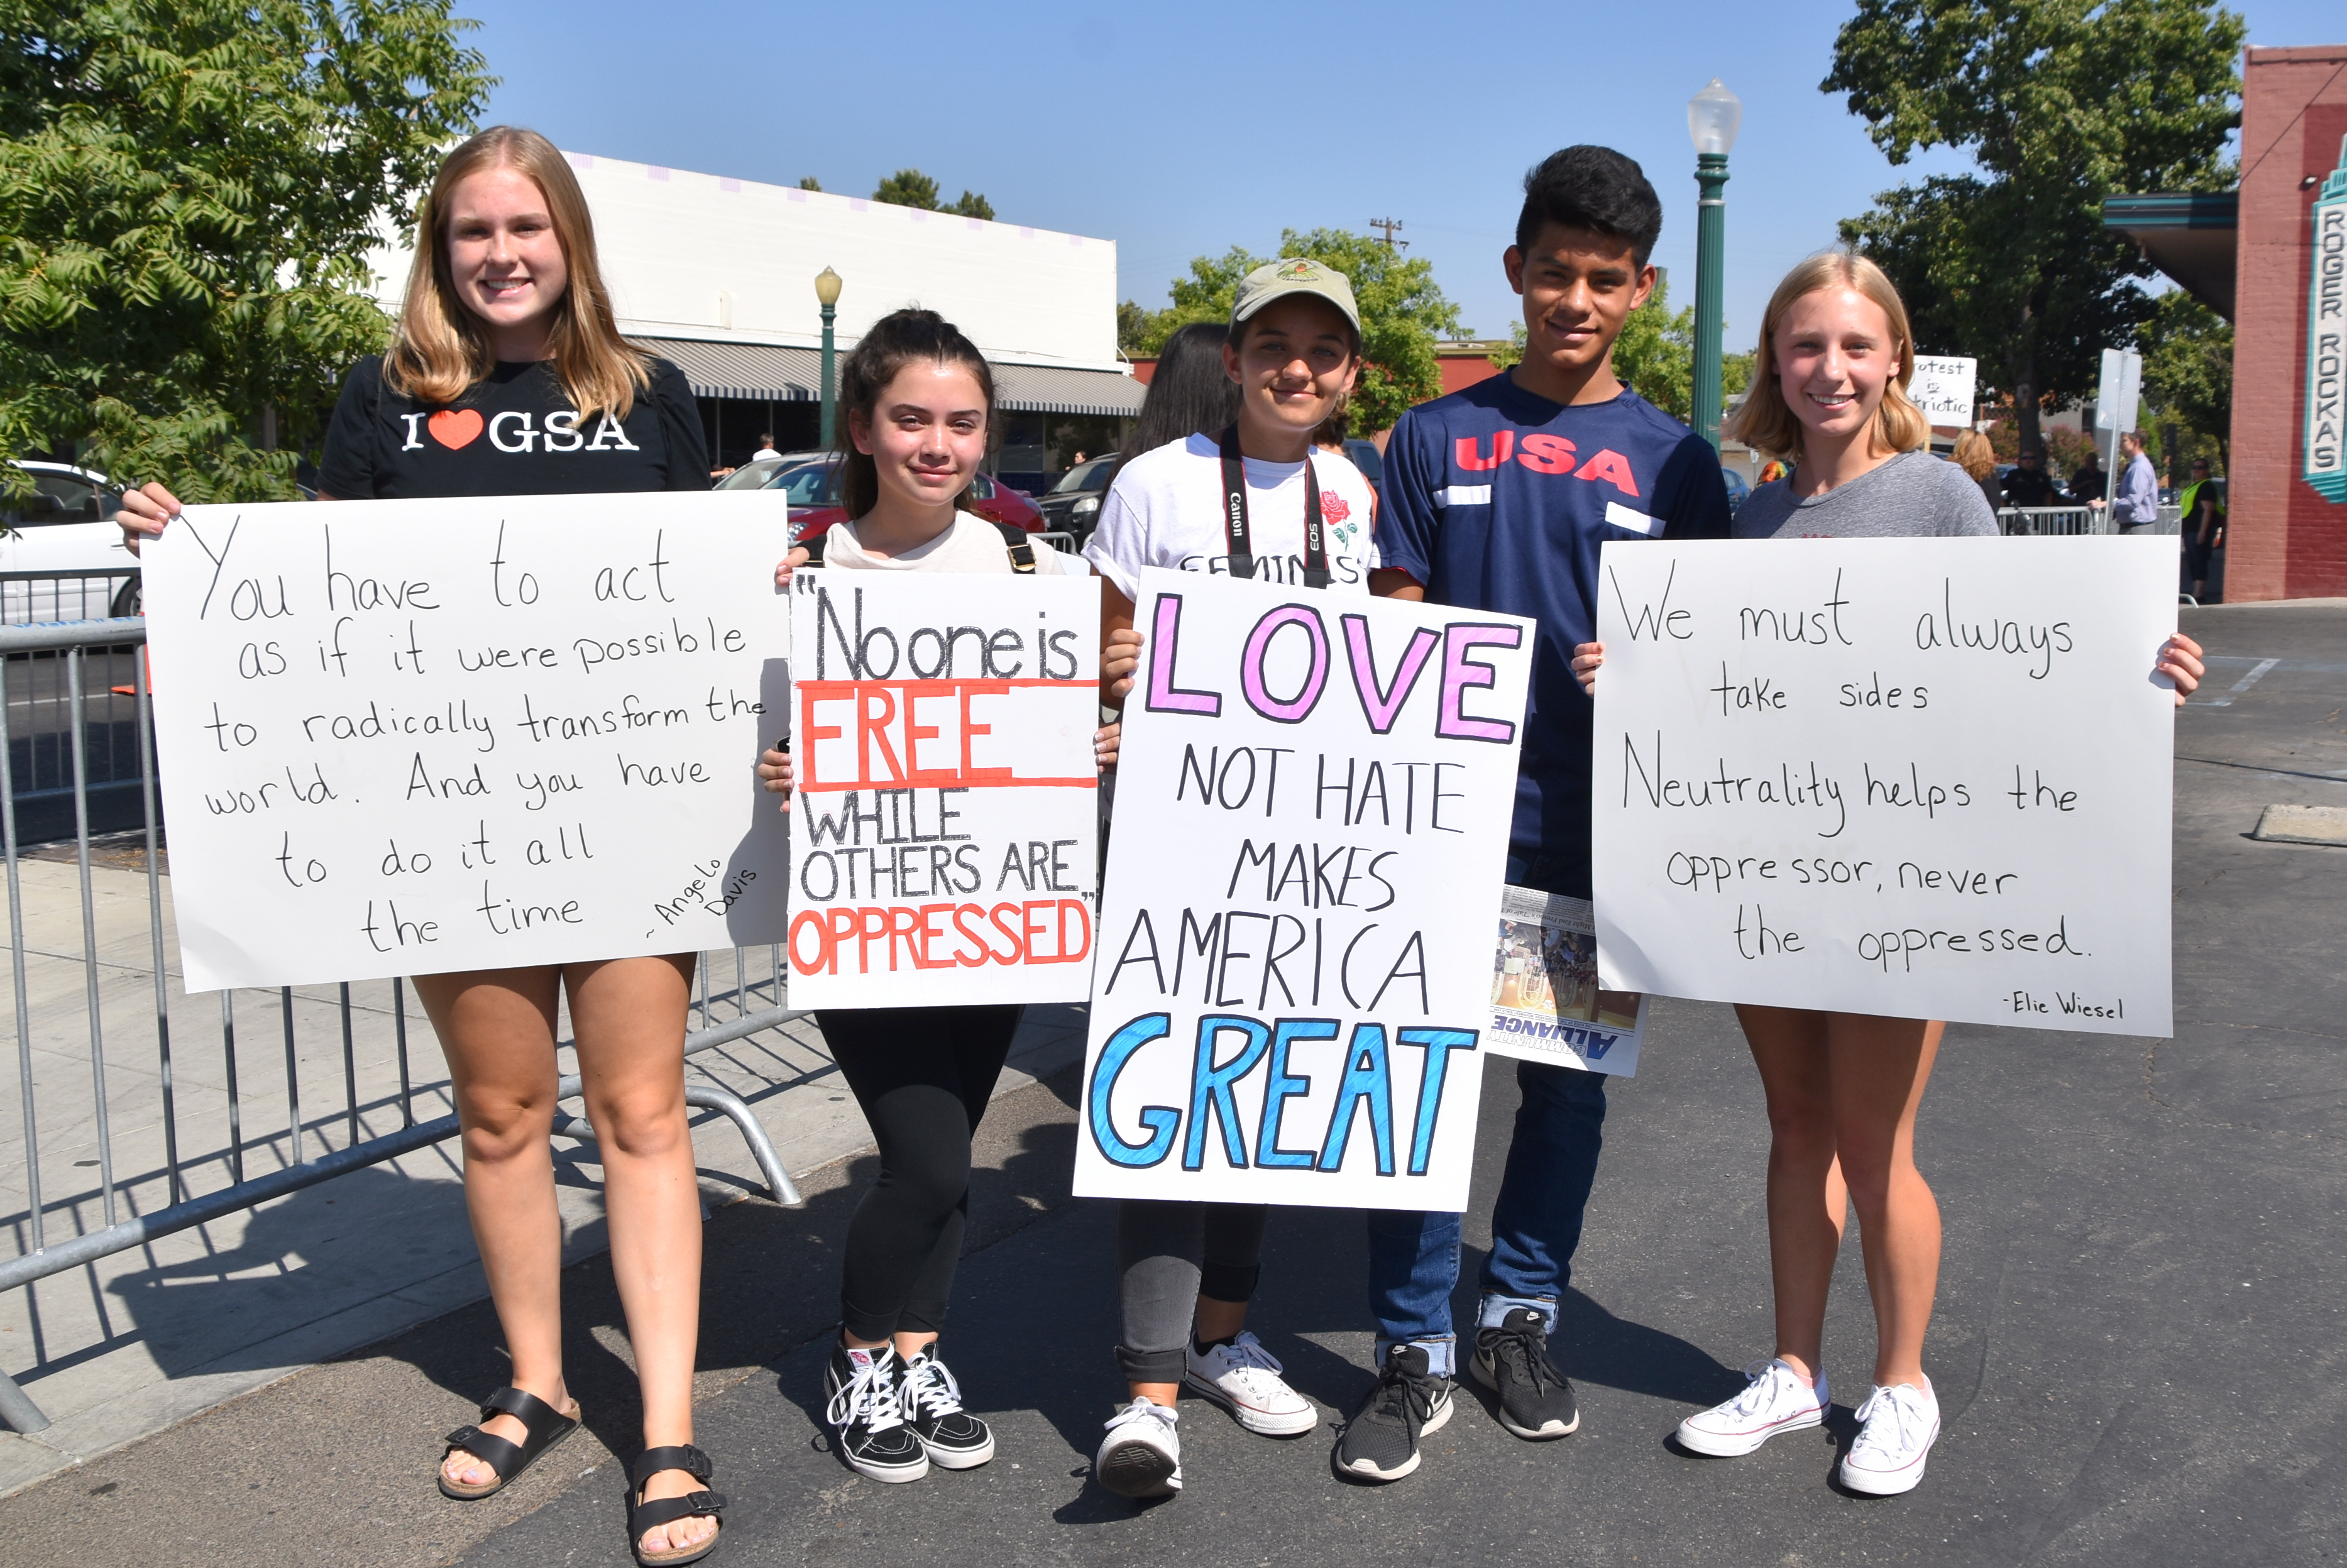 I ♥ GSA
You have to act
as if it were possible
to radically transform the
world. And you have
to do it all
the time
~ Angelo
Davis
"No one is
FREE
WHILE
OTHERS ARE
OPPRESSED"
Canon
EOS
FEMINIS
LOVE
NOT HATE
MAKES
AMERICA
GREAT
USA
COMMUNITY
ALLIANCE
We must always
take sides
Neutrality helps the
oppressor, never
the oppressed.
-Elie Wiesel
otest
is
triotic
ROGER ROCKAS